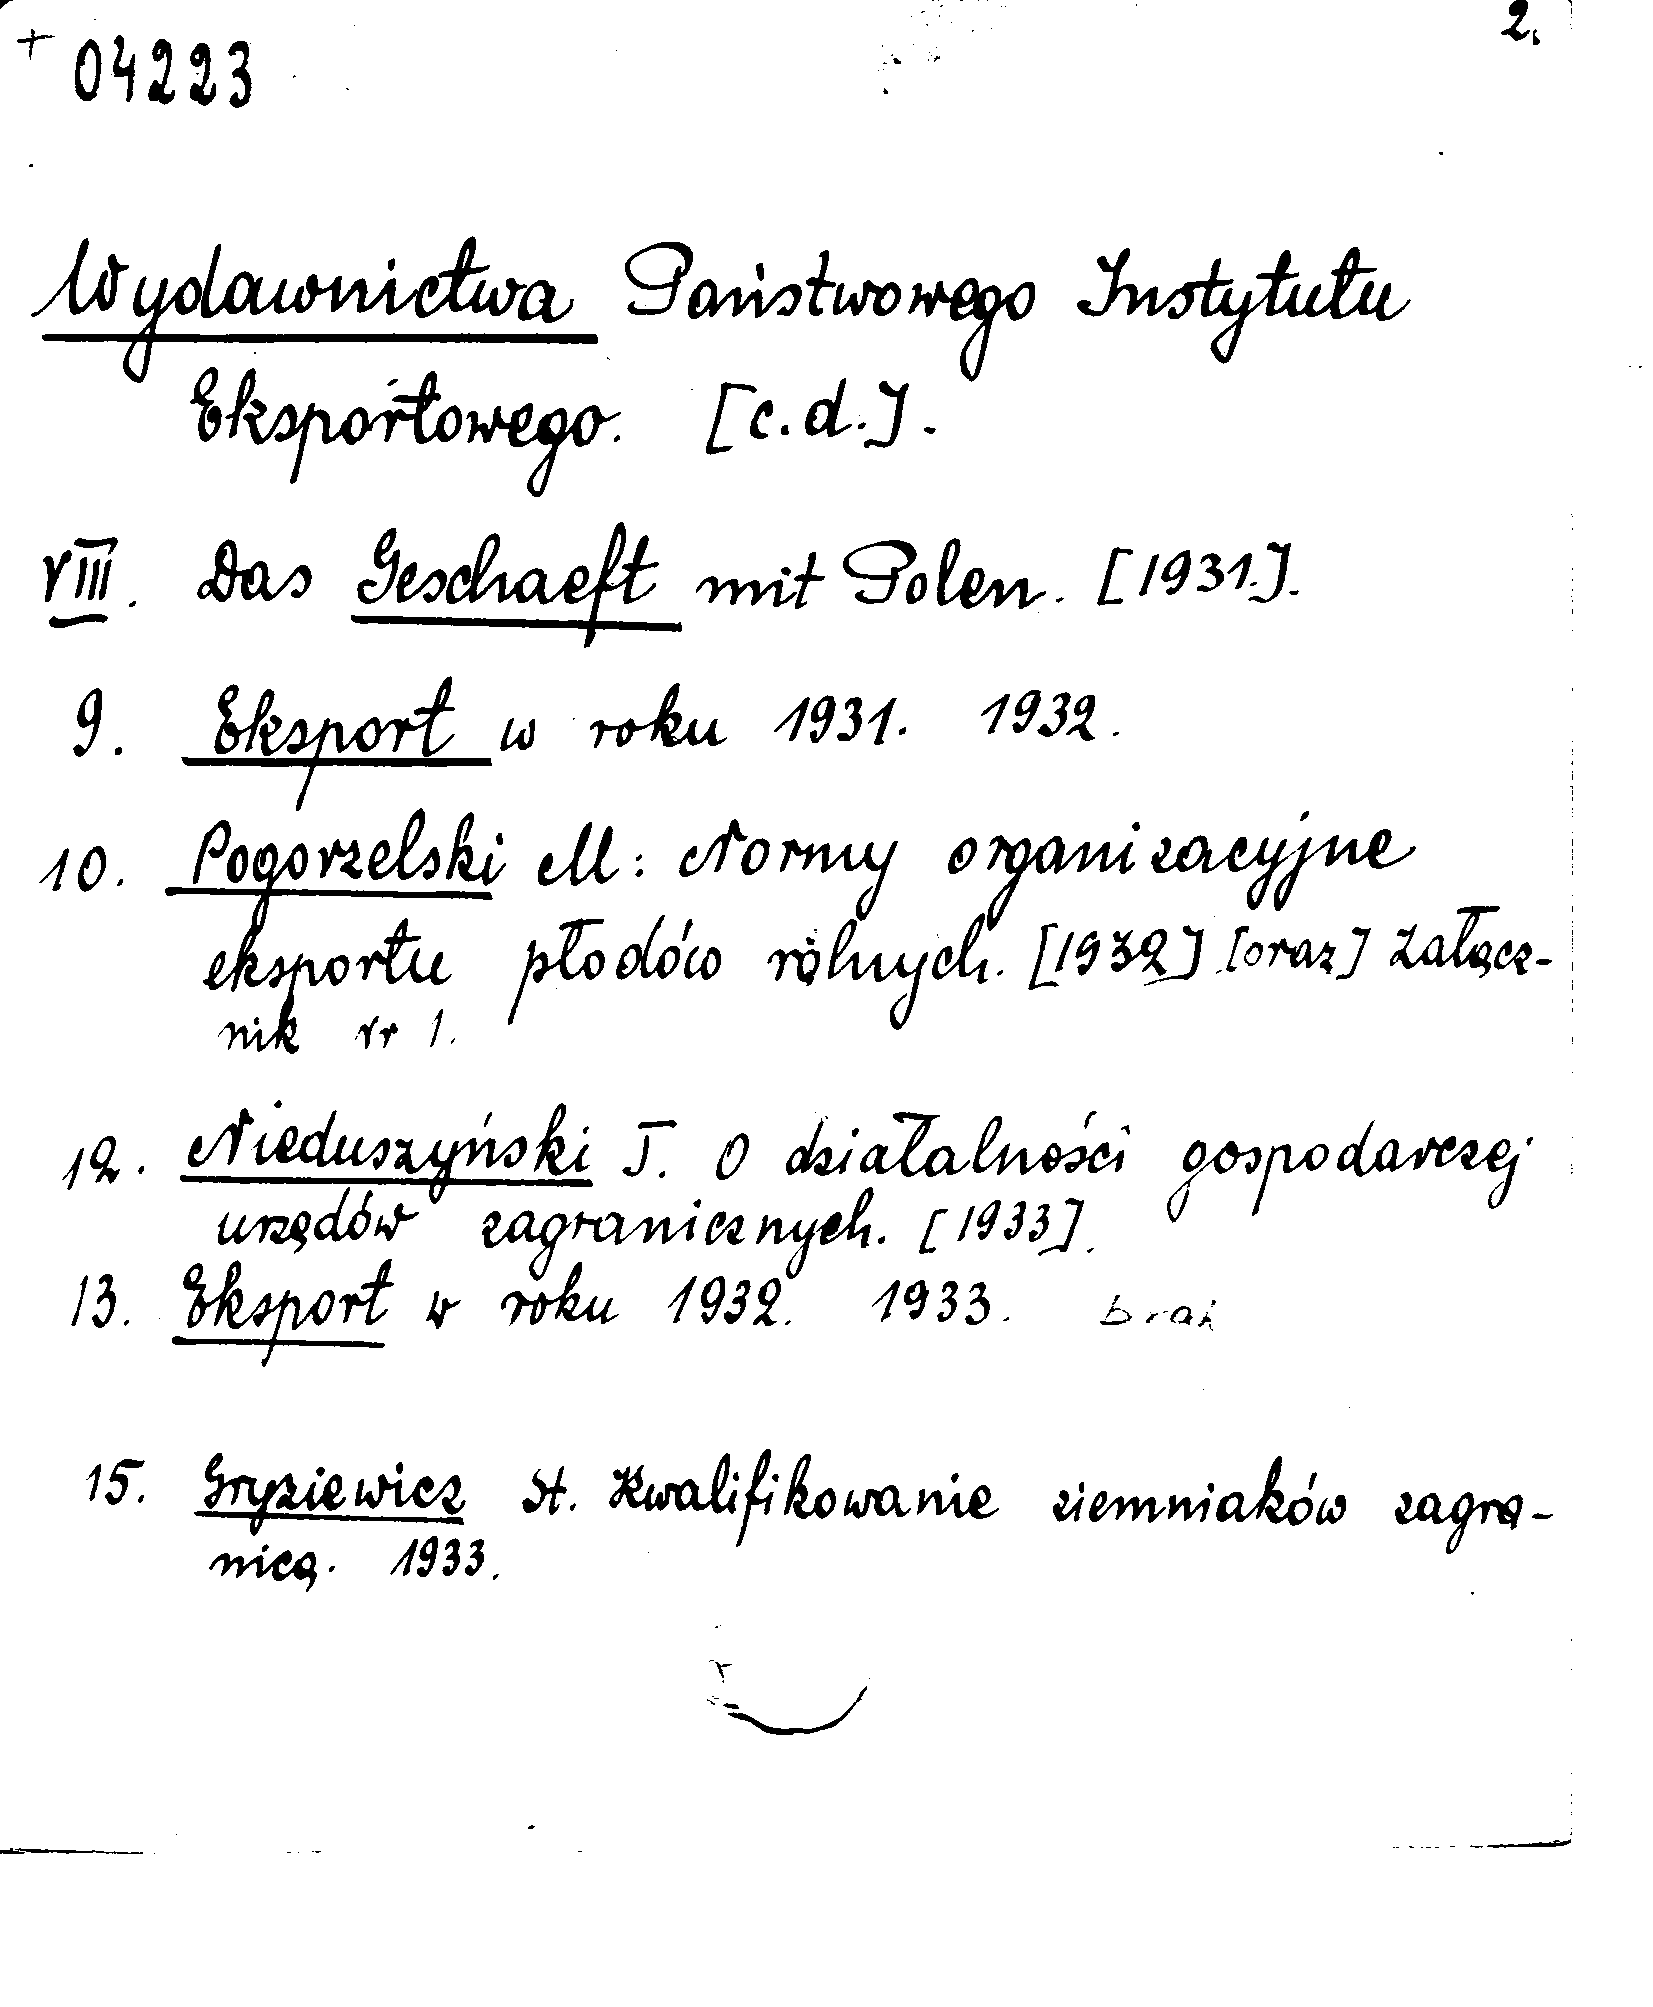 + 04223
2.
Wydawnictwa Państwowego Instytutu
Eksportowego. [c.d.].
VIII. Das Geschaeft mit Polen. [1931.].
9. Eksport w roku 1931. 1932.
10. Pogorzelski M: Normy organizacyjne
eksportu płodów rolnych. [1932] [oraz] Załącz-
nik nr 1.
12. Nieduszyński T. O działalności gospodarczej
urzędów zagranicznych. [1933].
13. Eksport w roku 1932. 1933. brak
15. Gryziewicz St. Kwalifikowanie ziemniaków zagra-
nicą. 1933.